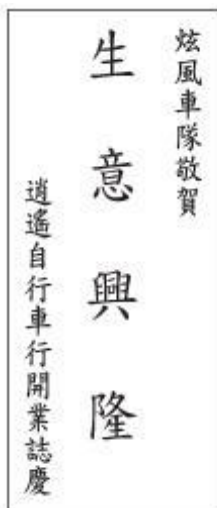 炫風車隊敬賀
生意興隆
逍遙自行車行開業誌慶